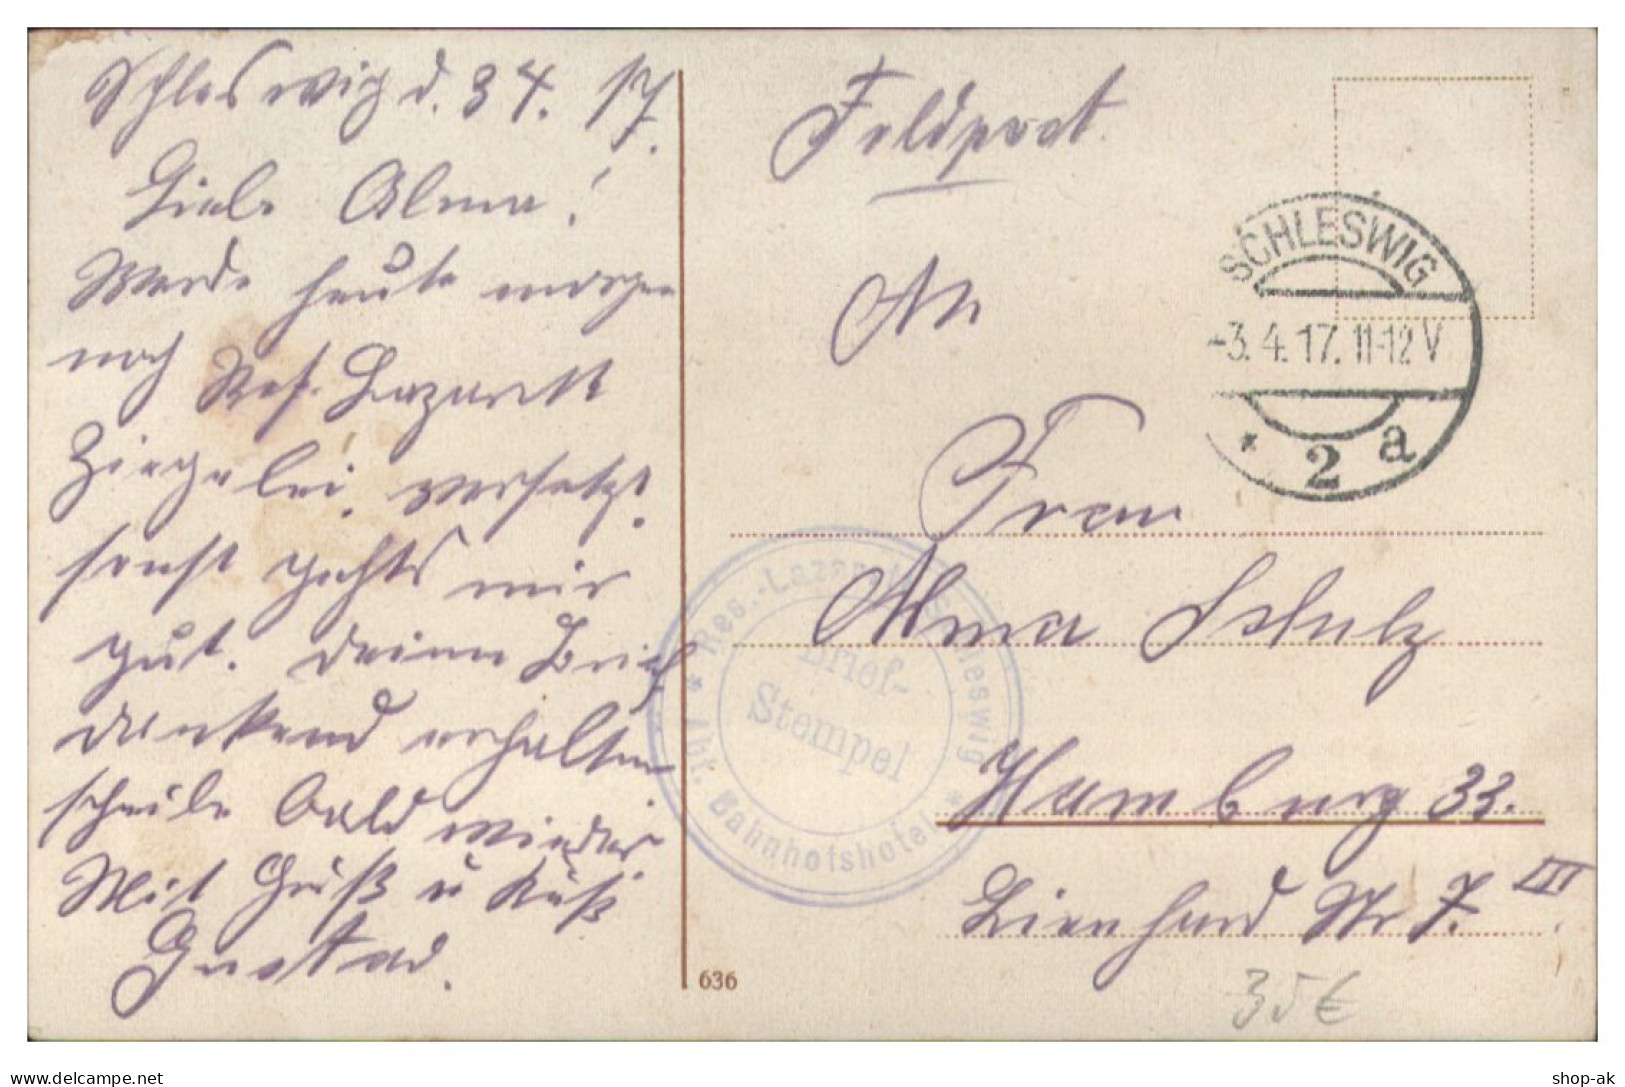 Schleswig d. 3 4. 17.
Liebe Alma!
Werde heute morgen
noch Res. Lazarett
Ziegelei, versetzt.
sonst gehts mir
gut. deinen Brief
dankend erhalten
schreibe bald wieder
Mit Gruß u Kuß
Gustav.
Feldpost
SCHLESWIG
-3.4.17.11-12V
* 2 a
An
Frau
Alma Schulz
Hamburg 33.
Lienhard Str 7. III.
* Res.-Lazarett Schleswig *
Abt. Bahnhofshotel
Brief-
Stempel
636
35€
delcampe.net
shop-ak